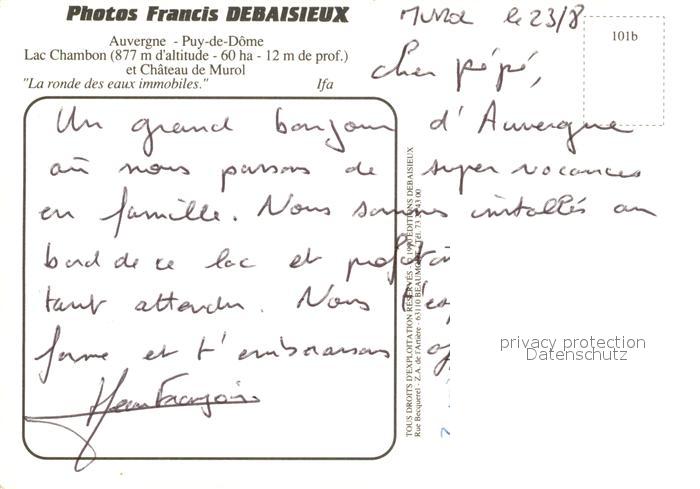 Photos Francis DEBAISIEUX
Auvergne - Puy-de-Dôme
Lac Chambon (877 m d'altitude - 60 ha - 12 m de prof.)
et Château de Murol
"La ronde des eaux immobiles." Ifa
Murol le 23/8
101b
Cher pépé,
Un grand bonjour d'Auvergne
où nous passons de super vacances
en famille. Nous sommes installés au
bord de ce lac et
tant attendu. Nous
forme et t'embrassons
Jean François
TOUS DROITS D'EXPLOITATION RÉSERVÉS - © 1990 ÉDITIONS DEBAISIEUX
Rue Becquerel - Z.A. de l'Artière - 63110 BEAUMONT - Tél. 73 43 00
privacy protection
Datenschutz